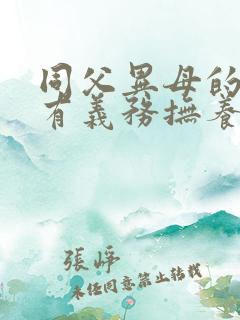 同父異母的
有義務撫養
張崢
未经同意禁止转载